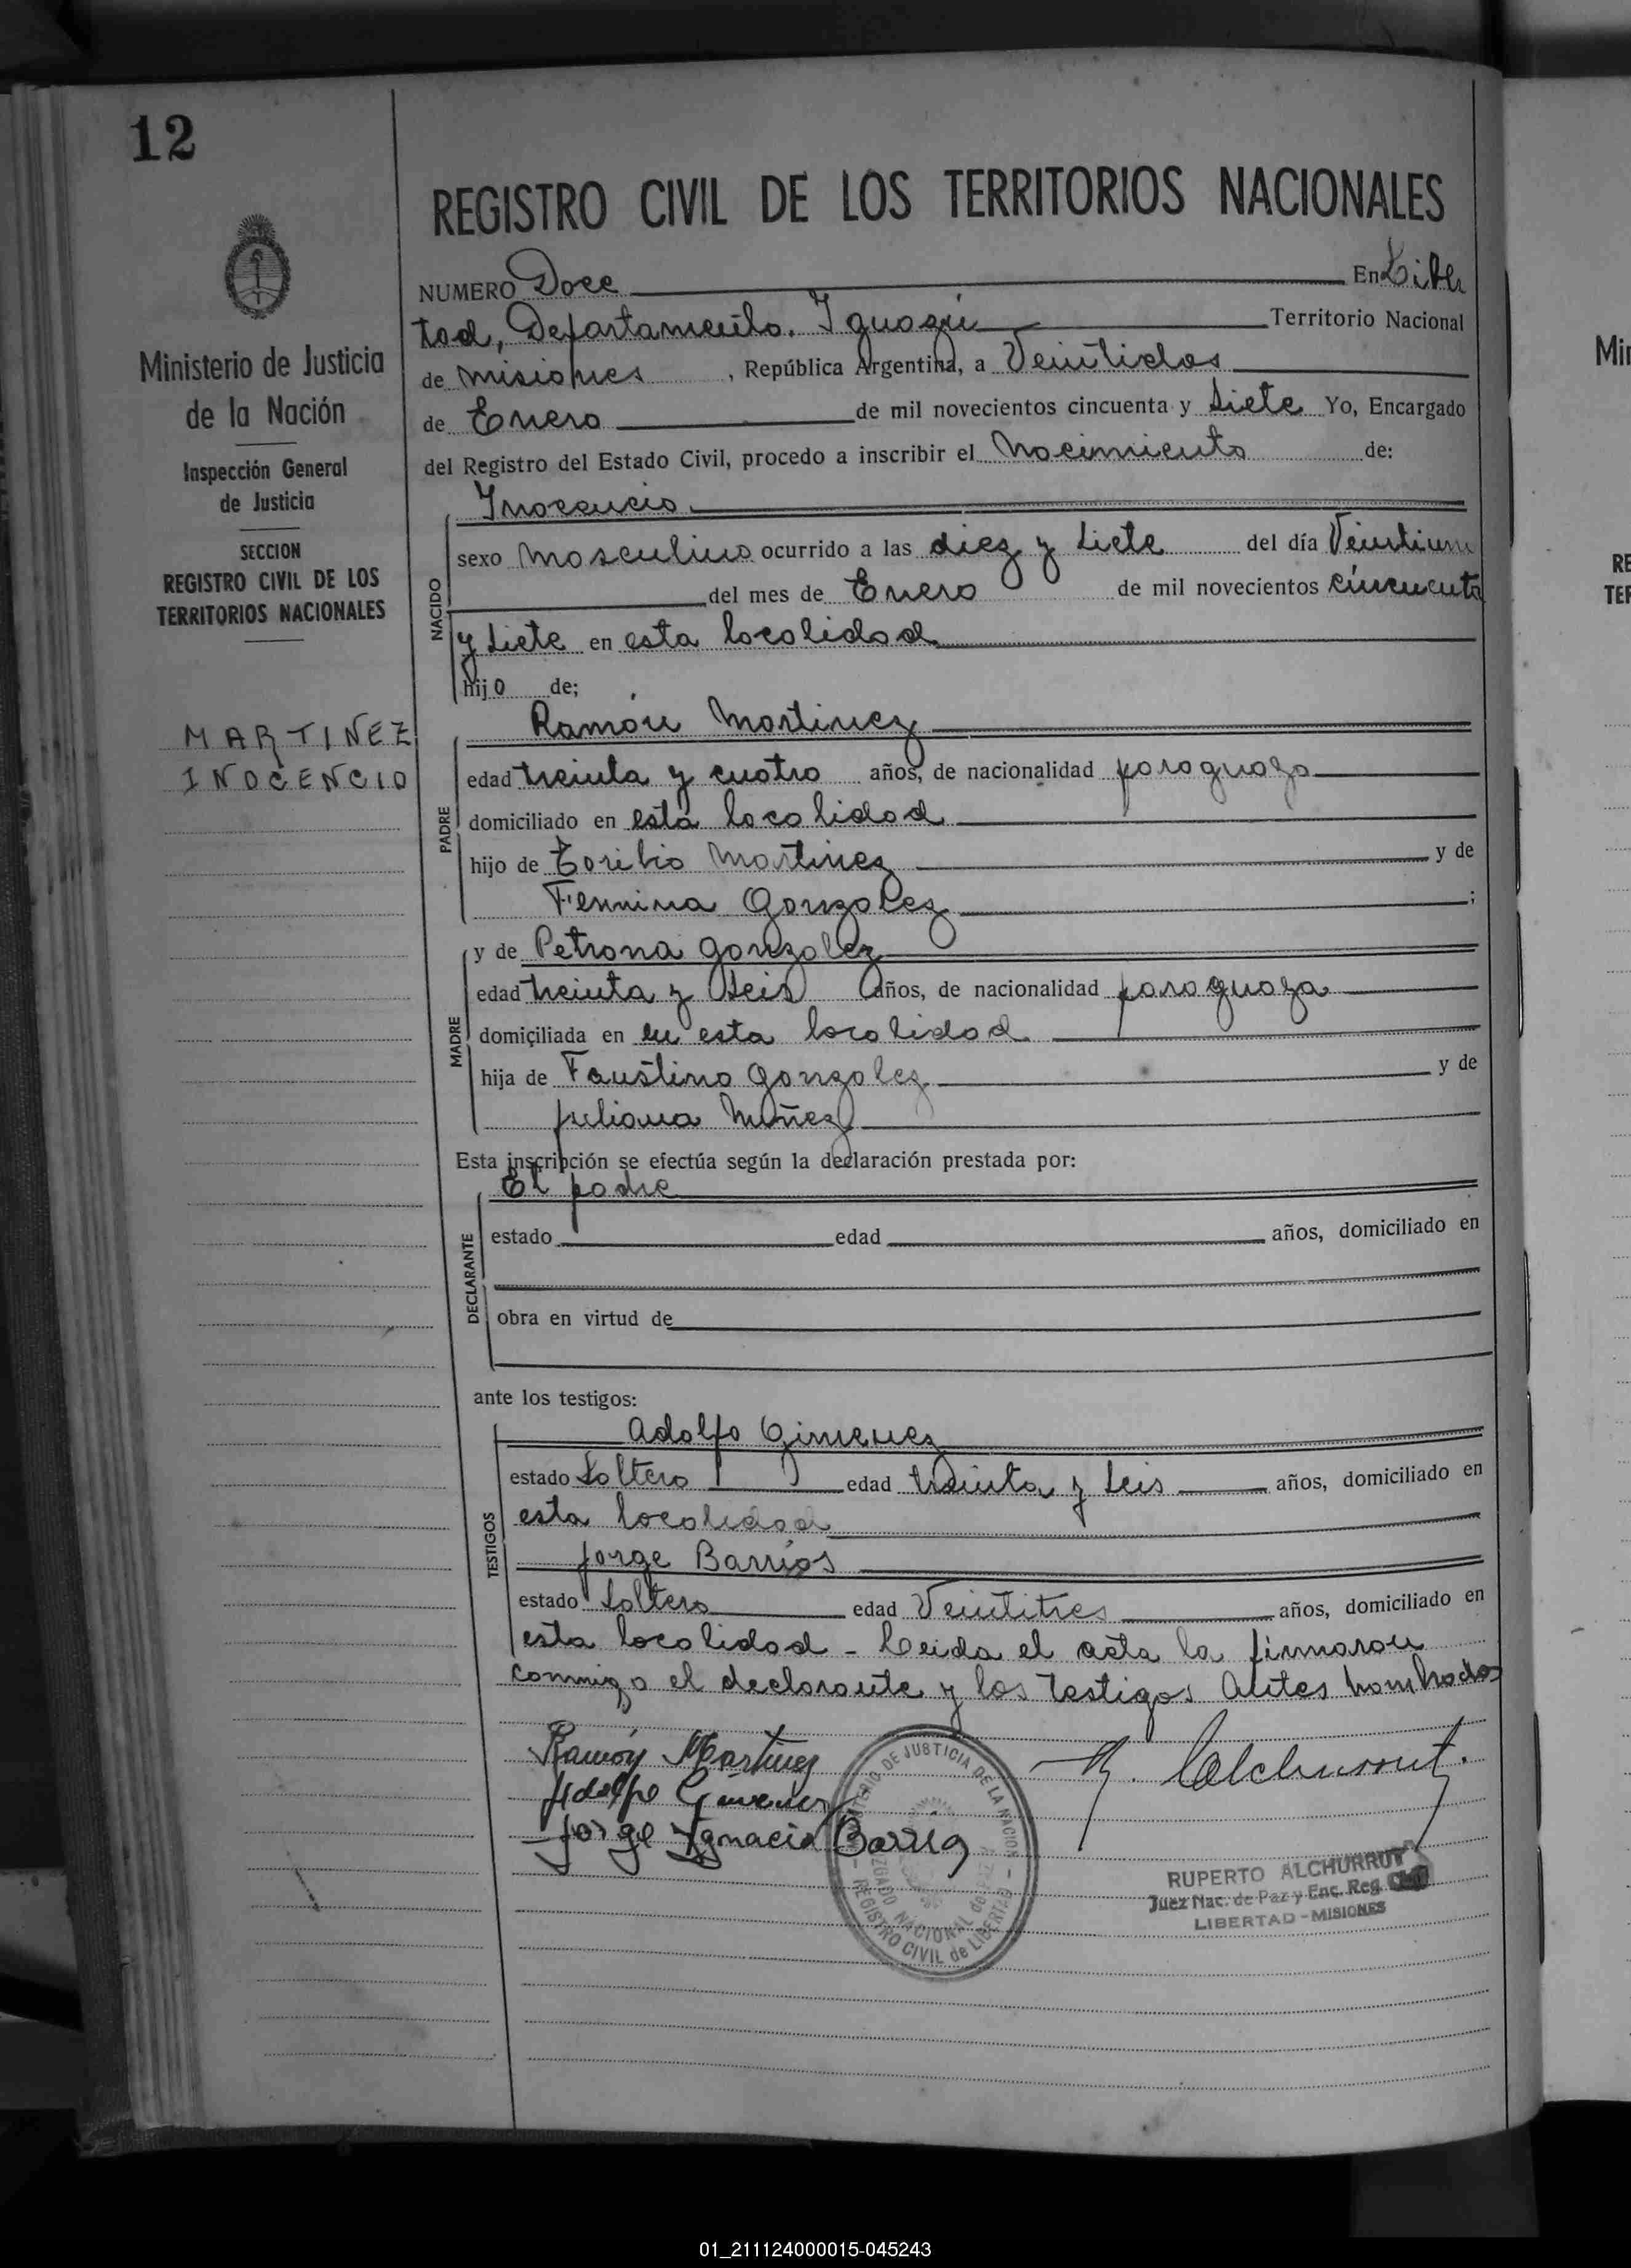 12
REGISTRO CIVIL DE LOS TERRITORIOS NACIONALES
Ministerio de Justicia
de la Nación
Inspección General
de Justicia
SECCION
REGISTRO CIVIL DE LOS
TERRITORIOS NACIONALES
MARTINEZ
INOCENCIO
NUMERO Doce En Liber
tad, Departamento. Iguazú Territorio Nacional
de Misiones, República Argentina, a Veintidos
de Enero de mil novecientos cincuenta y siete Yo, Encargado
del Registro del Estado Civil, procedo a inscribir el Nacimiento de:
Inocencio
NACIDO
sexo Masculino ocurrido a las diez y siete del día Veintiuno
del mes de Enero de mil novecientos cincuenta
y siete en esta localidad
hijo de;
Ramón Martinez
PADRE
edad treinta y cuatro años, de nacionalidad paraguayo
domiciliado en esta localidad
hijo de Toribio Martinez y de
Fermina Gonzalez;
y de Petrona Gonzalez
MADRE
edad treinta y seis años, de nacionalidad paraguaya
domiciliada en en esta localidad
hija de Faustino Gonzalez y de
Juliana Nuñez
Esta inscripción se efectúa según la declaración prestada por:
El padre
DECLARANTE
estado edad años, domiciliado en
obra en virtud de
ante los testigos:
Adolfo Gimenez
TESTIGOS
estado Soltero edad treinta y seis años, domiciliado en
esta localidad
Jorge Barrios
estado Soltero edad Veintitres años, domiciliado en
esta localidad - Leida el acta la firmaron
conmigo el declarante y los testigos antes nombrados
Ramón Martinez
Adolfo Gimenez
Jorge Ignacio Barrios
R. Alchurrut.
MINISTERIO DE JUSTICIA DE LA NACION
JUZGADO NACIONAL de PAZ
REGISTRO CIVIL de LIBERTAD
RUPERTO ALCHURRUT
Juez Nac. de Paz y Enc. Reg. Civil
LIBERTAD - MISIONES
Min
RE
TER
01_211124000015-045243